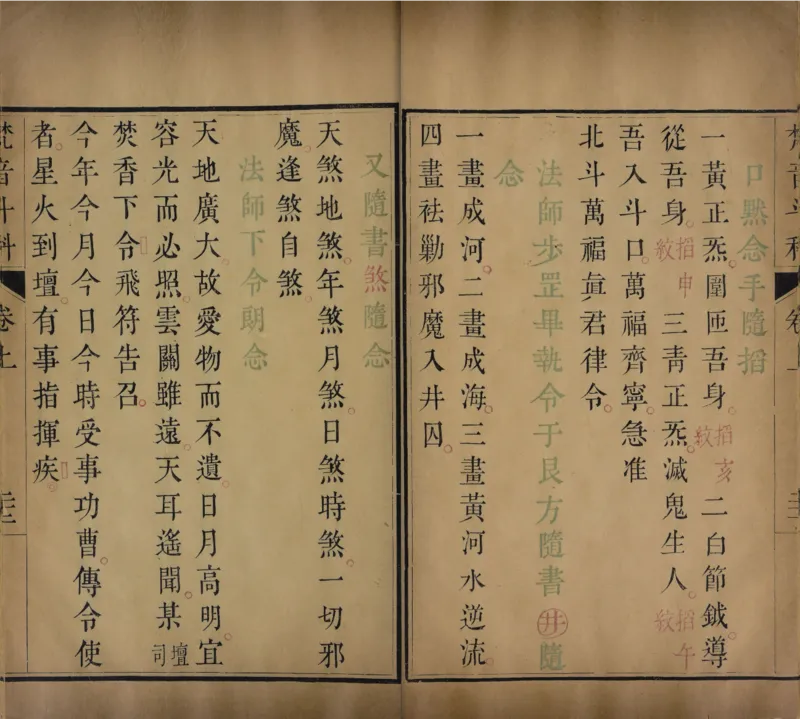 口黙念手隨掐
一黃正炁圍匝吾身掐亥紋二白節鉞導
從吾身掐申紋三靑正炁滅鬼生人掐午紋
吾入斗口萬福齊寧急准
北斗萬福眞君律令
法師步罡畢執令于艮方隨書井隨
念
一畫成河二畫成海三畫黃河水逆流
四畫祛勦邪魔入井囚
又隨書煞隨念
天煞地煞年煞月煞日煞時煞一切邪
魔逢煞自煞
法師下令朗念
天地廣大故愛物而不遺日月高明宜
容光而必照雲關雖遠天耳遙聞某壇司
焚香下令飛符告召
今年今月今日今時受事功曹傳令使
者星火到壇有事指揮疾
梵音斗科 卷上